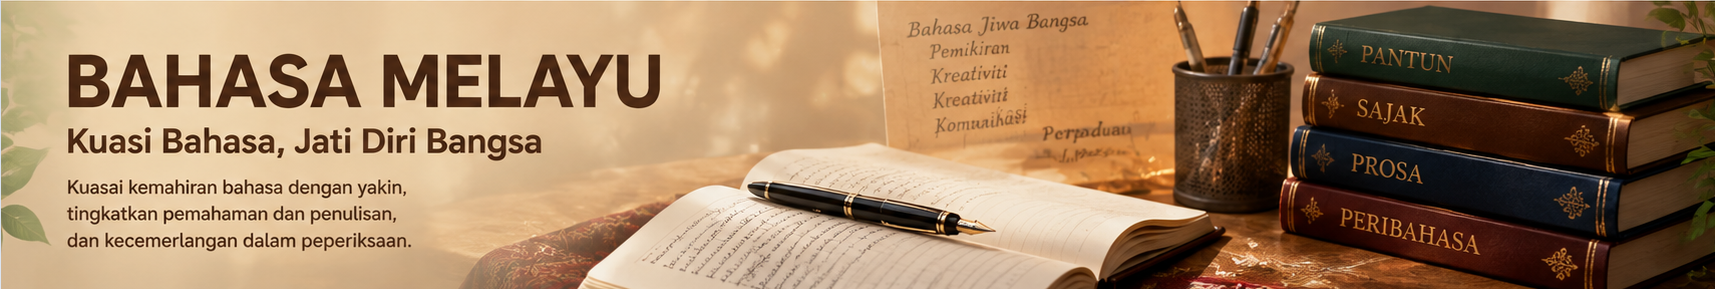 BAHASA MELAYU
Kuasi Bahasa, Jati Diri Bangsa
Kuasai kemahiran bahasa dengan yakin,
tingkatkan pemahaman dan penulisan,
dan kecemerlangan dalam peperiksaan.
Bahasa Jiwa Bangsa
Pemikiran
Kreativiti
Kreativiti
PANTUN
SAJAK
PROSA
PERIBAHASA